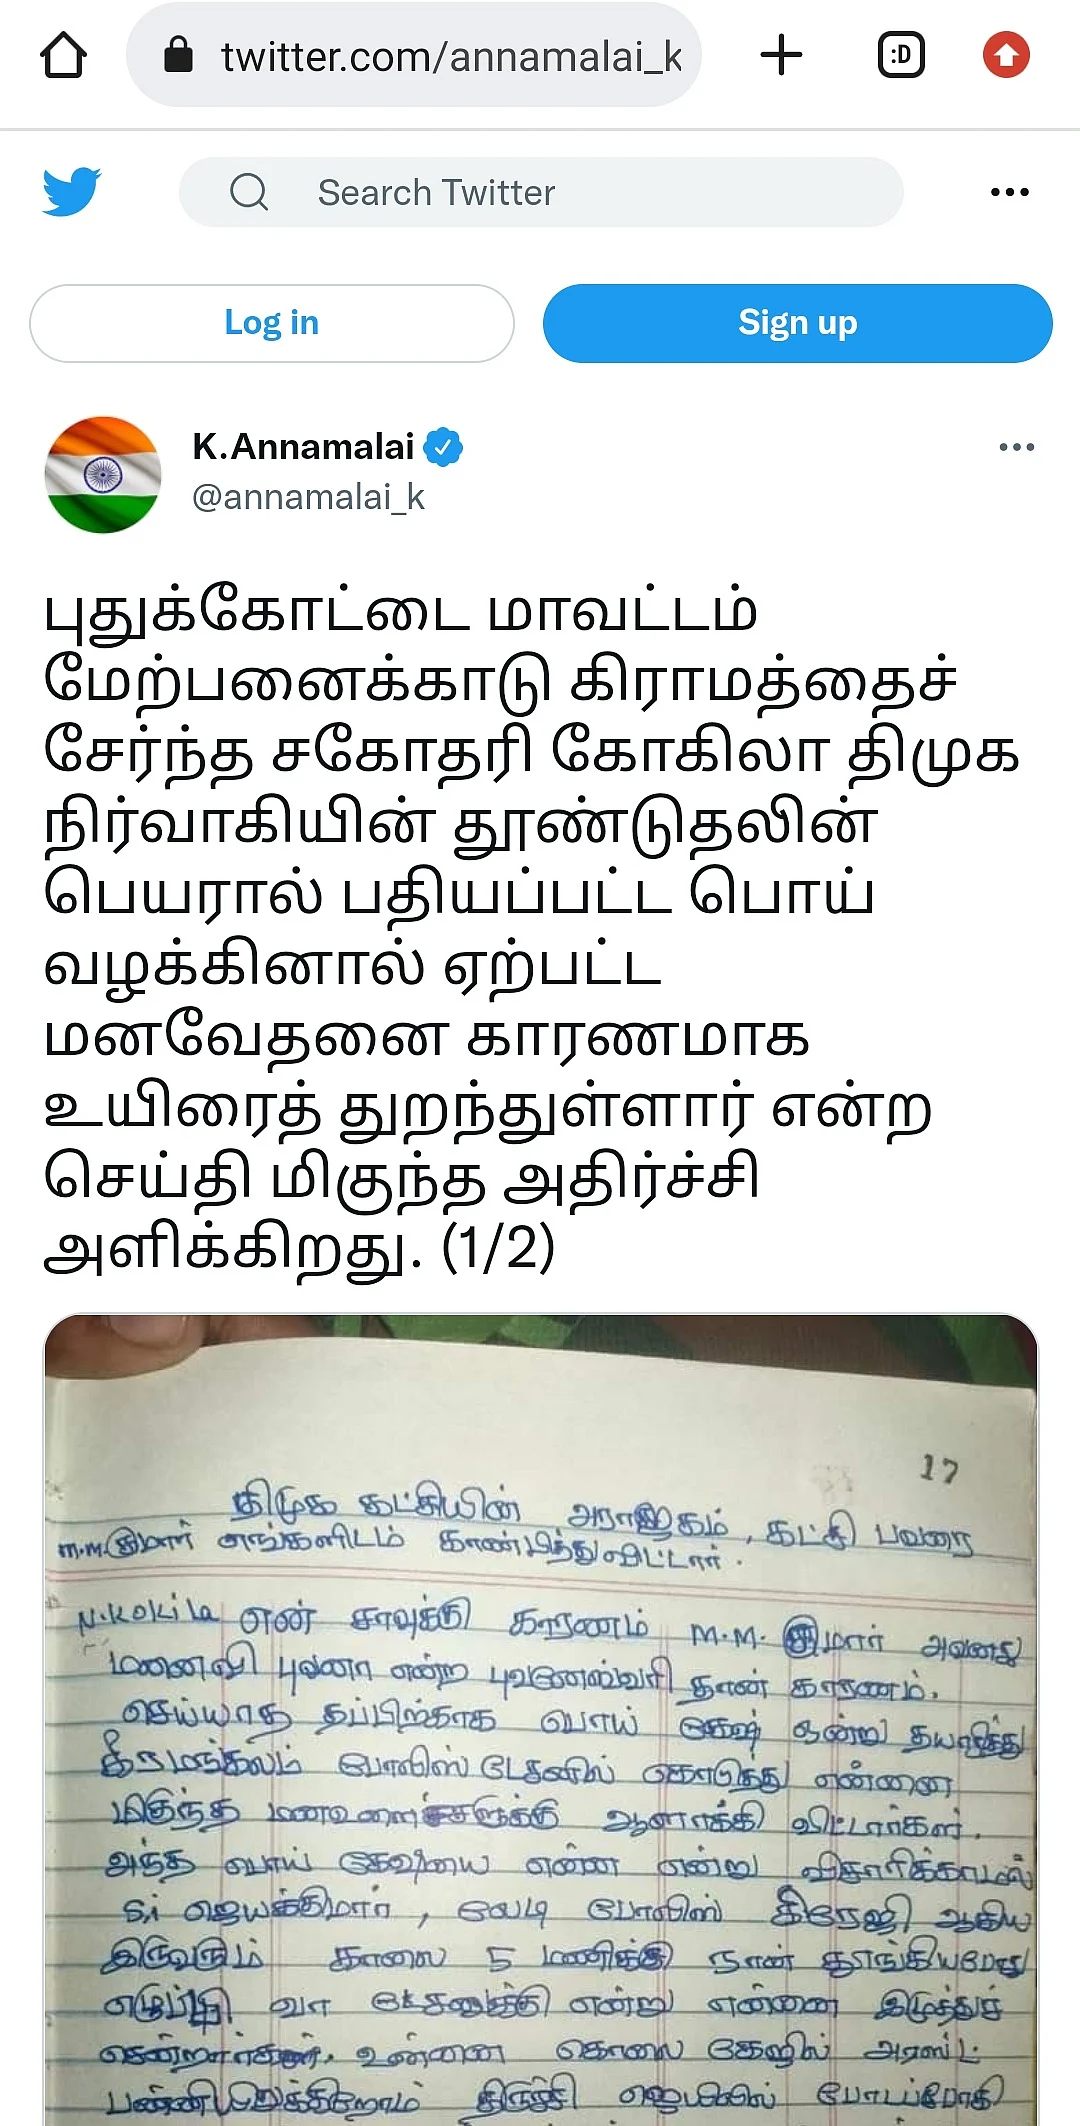 twitter.com/annamalai_k
:D
Search Twitter
Log in
Sign up
K.Annamalai
@annamalai_k
புதுக்கோட்டை மாவட்டம்
மேற்பனைக்காடு கிராமத்தைச்
சேர்ந்த சகோதரி கோகிலா திமுக
நிர்வாகியின் தூண்டுதலின்
பெயரால் பதியப்பட்ட பொய்
வழக்கினால் ஏற்பட்ட
மனவேதனை காரணமாக
உயிரைத் துறந்துள்ளார் என்ற
செய்தி மிகுந்த அதிர்ச்சி
அளிக்கிறது. (1/2)
17
திமுக கட்சியின் அராஜகம், கட்சி பவரை
m.m.குமார் எங்களிடம் காண்பித்துவிட்டார்.
N.Kokila என் சாவுக்கு காரணம் M.M. குமார் அவனது
மனைவி புவனா என்ற புவனேஸ்வரி தான் காரணம்.
செய்யாத தப்பிற்காக பொய் கேஷ் ஒன்று தயாரித்து
கீரமங்கலம் போலிஸ் டேசனில் கொடுத்து என்னை
மிகுந்த மனஉளைச்சலுக்கு ஆளாக்கி விட்டார்கள்.
அந்த பொய் கேஷியை என்ன என்று விசாரிக்காமல்
Si ஜெயக்குமார், லேடி போலிஸ் கிரேஜி ஆகிய
இருவரும் காலை 5 மணிக்கு நான் தூங்கியபோது
எழுப்பி வா டேசனுக்கு என்று என்னை இழுத்துச்
சென்றார்கள். உன்னை கொலை கேஸில் அரஸ்ட்
பண்ணியிருக்கிறோம் திருச்சி ஜெயிலில் போடப்போகி